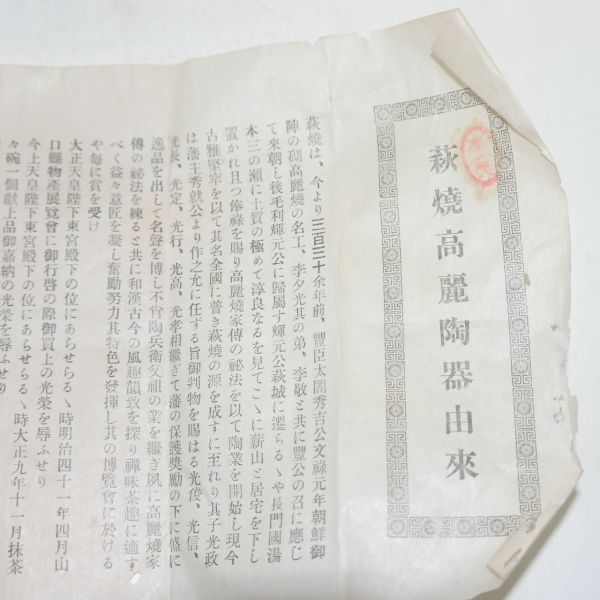 萩燒高麗陶器由來
萩燒は、今より三百三十余年前、豐臣太閤秀吉公文祿元年朝鮮御
陣の砌高麗燒の名工、李夕光其の弟、李敬と共に豐公の召に應じ
て來朝し後毛利輝元公に歸屬す輝元公萩城に遷らるゝや長門國湯
本三の瀨に土質の極めて淳良なるを見てこゝに薪山と居宅を下し
置かれ且つ俸祿を賜り高麗燒家傳の祕法を以て陶業を開始し現今
古雅堅牢を以て其名全國に普き萩燒の源を成すに至れり其子光政
は藩主秀就公より作之允に任する旨御判物を賜はる光俊、光信、
光長、光定、光行、光高、光孝相繼ぎて藩の保護奬勵の下に盛に
逸品を出して名聲を博し不肖陶兵衞父祖の業を繼ぎ夙に高麗燒家
傳の祕法を練ると共に和漢古今の風趣韻致を探り禪味茶趣に適す
べく益々意匠を凝し奮勵努力其特色を發揮し其の博覽會に於ける
や每に賞を受け
大正天皇陛下東宮殿下の位にあらせらるゝ時明治四十一年四月山
口縣物產展覽會に御行啓の際御買上の光榮を辱ふせり
今上天皇陛下東宮殿下の位にあらせらるゝ時大正九年十一月抹茶
々碗一個獻上品御嘉納の光榮を辱ふせり